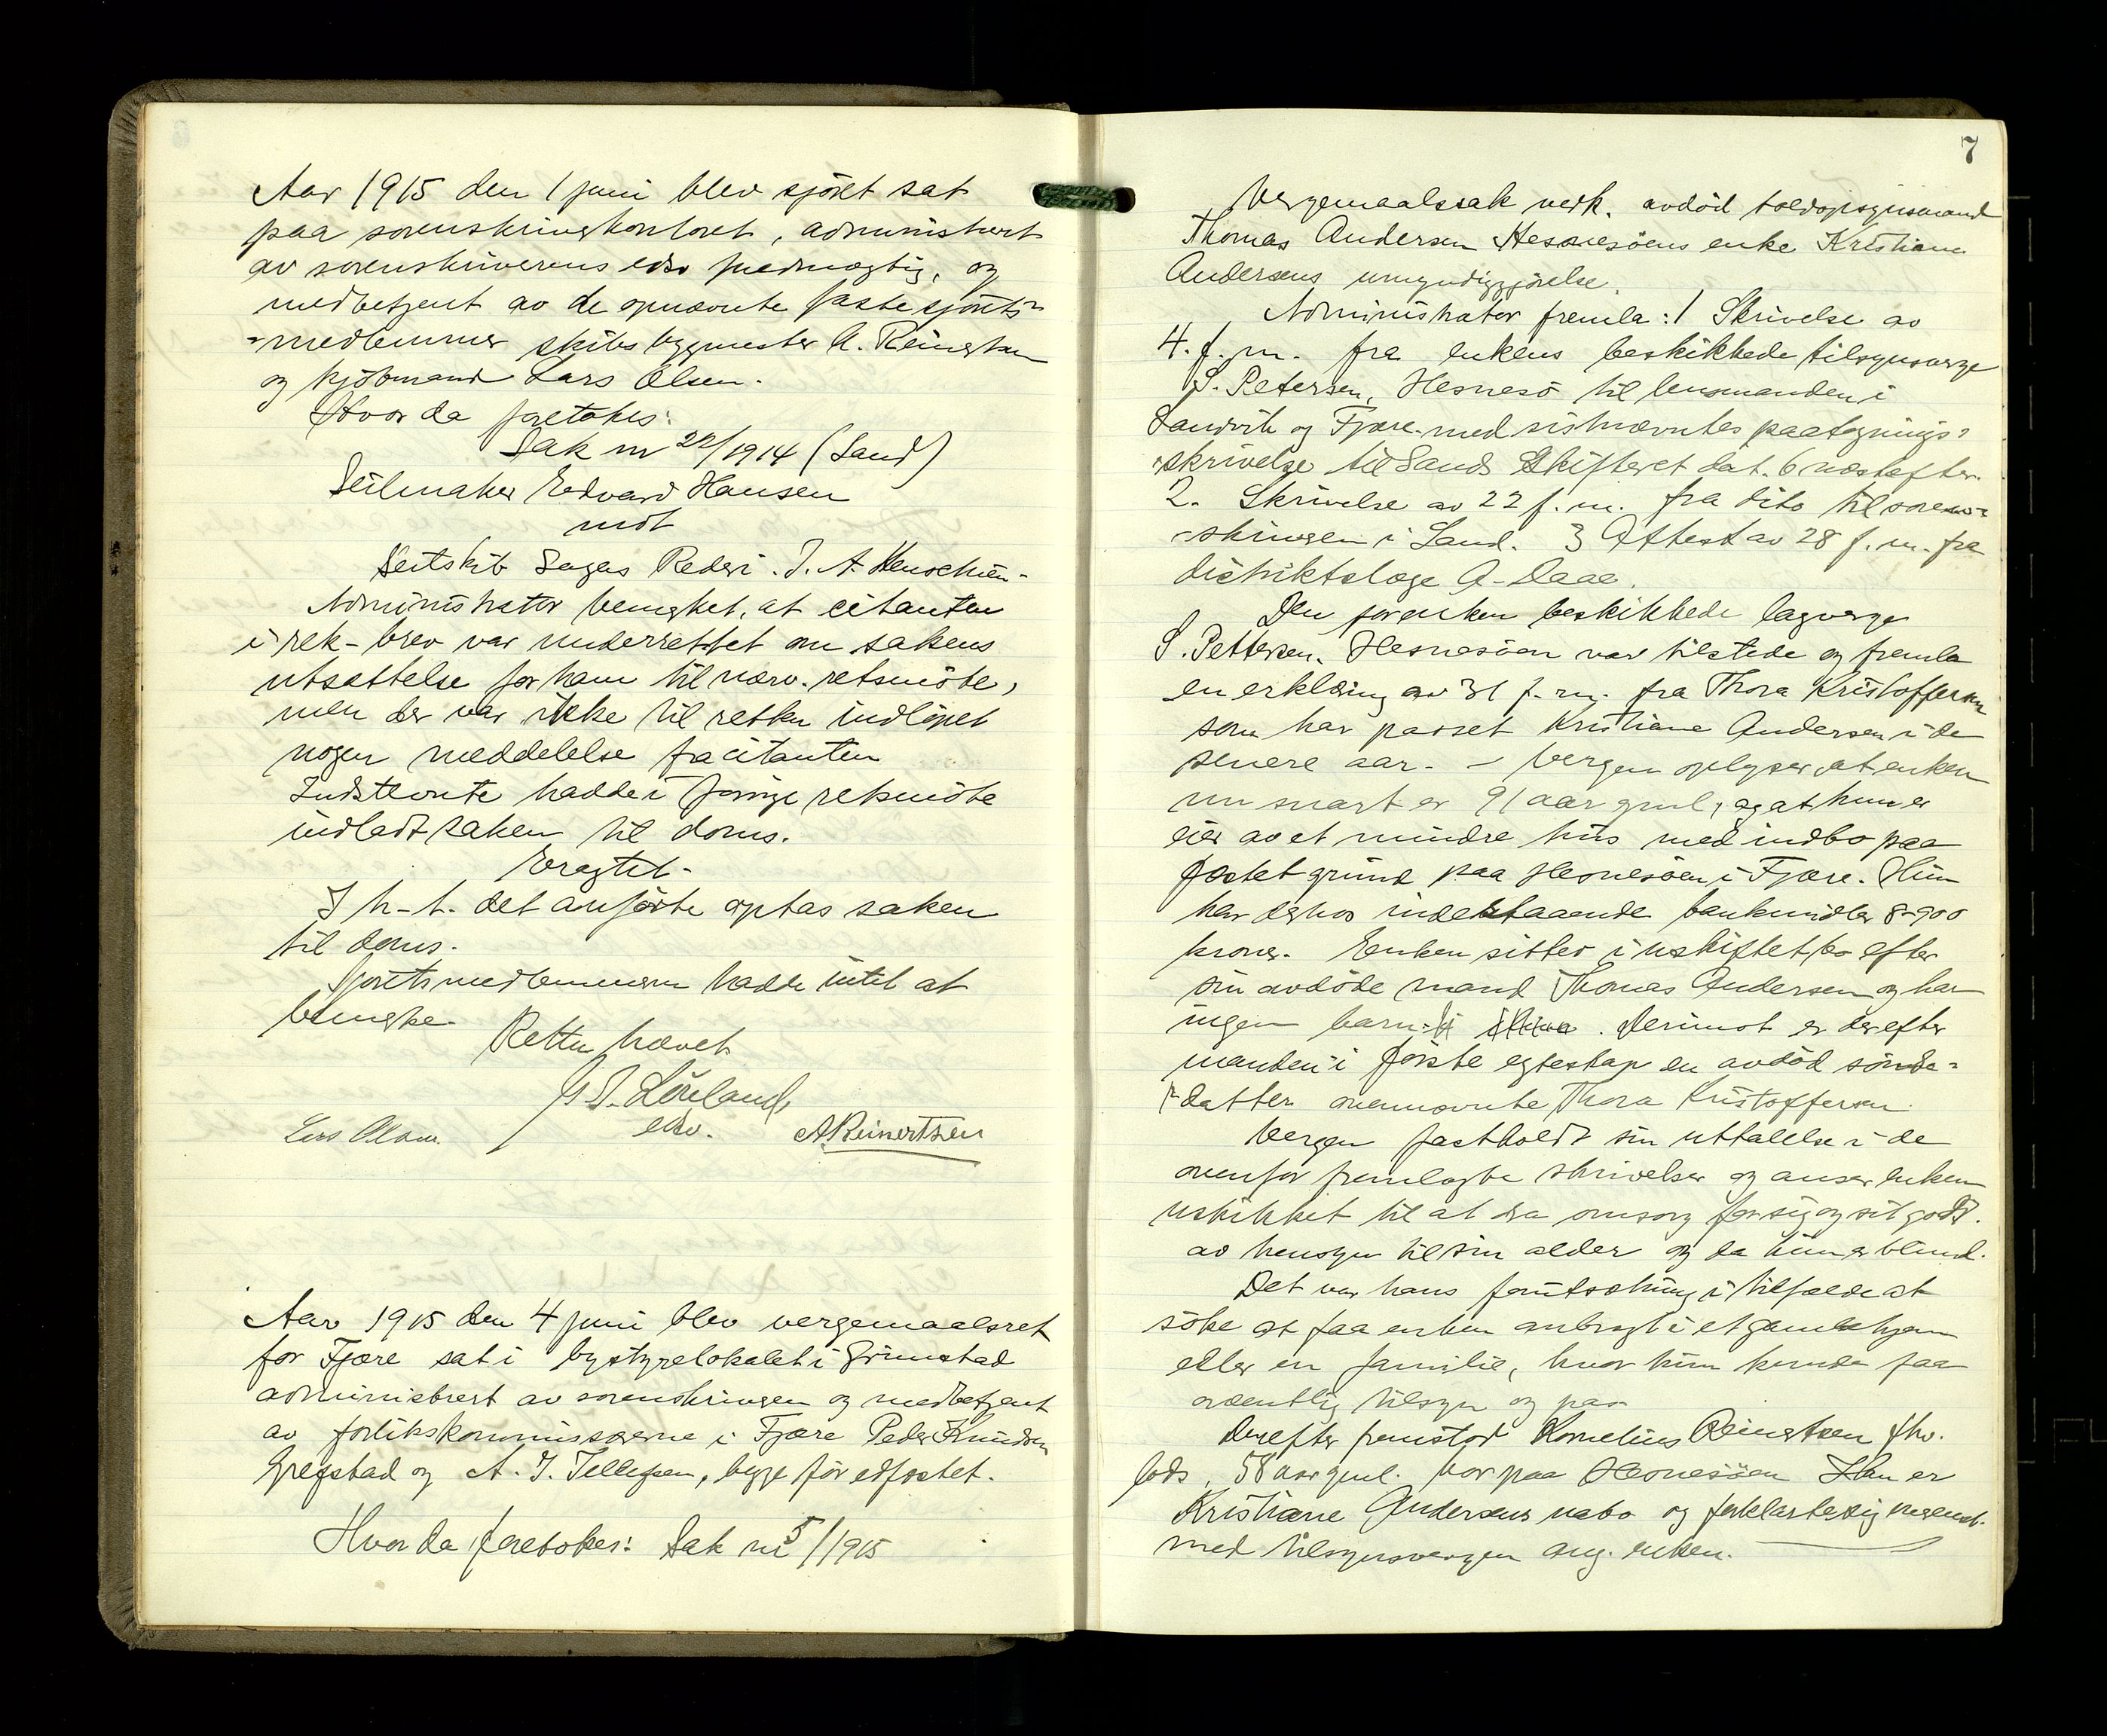 Aar 1915 den 1 juni blev sjöret sat
paa sorenskriverkontoret, administrert
av sorenskriverens edsv fuldmægtig, og
medbetjent av de opnævnte faste sjörets-
-medlemmer skibsbygmester A. Reinertsen
og kjöbmand Lars Olsen.
Hvor da foretokes:
Sak nr 22/1914 (Sand)
Seilmaker Edvard Hansen
mot
Seilskib Sagas Rederi. J. A. Henschien-
Administrator bemerket, at citanten
i rek-brev var underrettet om sakens
utsættelse for ham til nærv. retsmöte,
men der var ikke til retten indlöpet
nogen meddelelse fra citanten
Indstevnte hadde i forrige retsmöte
indladt saken til doms.
Eragtet-
I h-t. det anförte optas saken
til doms.
Sjöretsmedlemmerne hadde intet at
bemerke.
Retten hævet
Löveland
edsv.
Lars Olsen
A Reinertsen
Aar 1915 den 4 juni blev vergemaalsret
for Fjære sat i bystyrelokalet i Grimstad
administrert av sorenskriveren og medbetjent
av forlikskommissærerne i Fjære Peder Knudsen
Grefstad og A. J. Tellefsen, begge för edfæstet.
Hvor da foretokes: Sak nr 5/1915
7
Vergemaalssak vedk. avdöd toldopsynsmand
Thomas Andersen Hesnesöens enke Kristiane
Andersens umyndiggjörelse.
Administrator fremla: 1 Skrivelse av
4. f. m. fra enkens beskikkede tilsynsverge
S. Petersen, Hesnesö til lensmanden i
Landvik og Fjære med sistnævntes paategnings-
-skrivelse til Sands Skifteret dat. 6 næstefter.
2. Skrivelse av 22 f. m. fra dito til soren-
-skriveren i Sand. 3 Attest av 28 f. m. fra
distriktslæge A. Daae.
Den for enken beskikkede lagverge
S. Pettersen, Hesnesöen var tilstede og fremla
en erklæring av 31 f. m. fra Thora Kristoffersen
som har passet Kristiane Andersen i de
senere aar. - Vergen oplyser at enken
nu snart er 91 aar gml, og at hun er
eier av et mindre hus med indbo paa
fæstet grund paa Hesnesöen i Fjære. Hun
har derhos indestaaende bankmidler 8-900
kroner. Enken sitter i uskiftet bo efter
sin avdöde mand Thomas Andersen og har
ingen barn. Derimot er der efter
manden i förste egteskap en avdöd sönne-
-datter ovennævnte Thora Kristoffersen.
Vergen fastholdt sin uttalelse i de
ovenfor fremlagte skrivelser og anser enken
uskikket til at dra omsorg for sig og sit gods.
av hensyn til sin alder og da hun er blind.
Det var hans forutsætning i tilfælde at
söke at faa enken anbragt i et gamlehjem
eller en familie, hvor hun kunde faa
ordentlig tilsyn og pas.
Derefter fremstod Kornelius Reinertsen fhv.
lods, 58 aar gml. bor paa Hesnesöen Han er
Kristiane Andersens nabo og forklarte sig overenst.
med tilsynsvergen ang. enken.